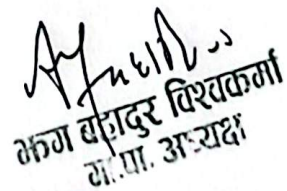 भग बहादुर विश्वकर्मा
गा.पा. अध्यक्ष